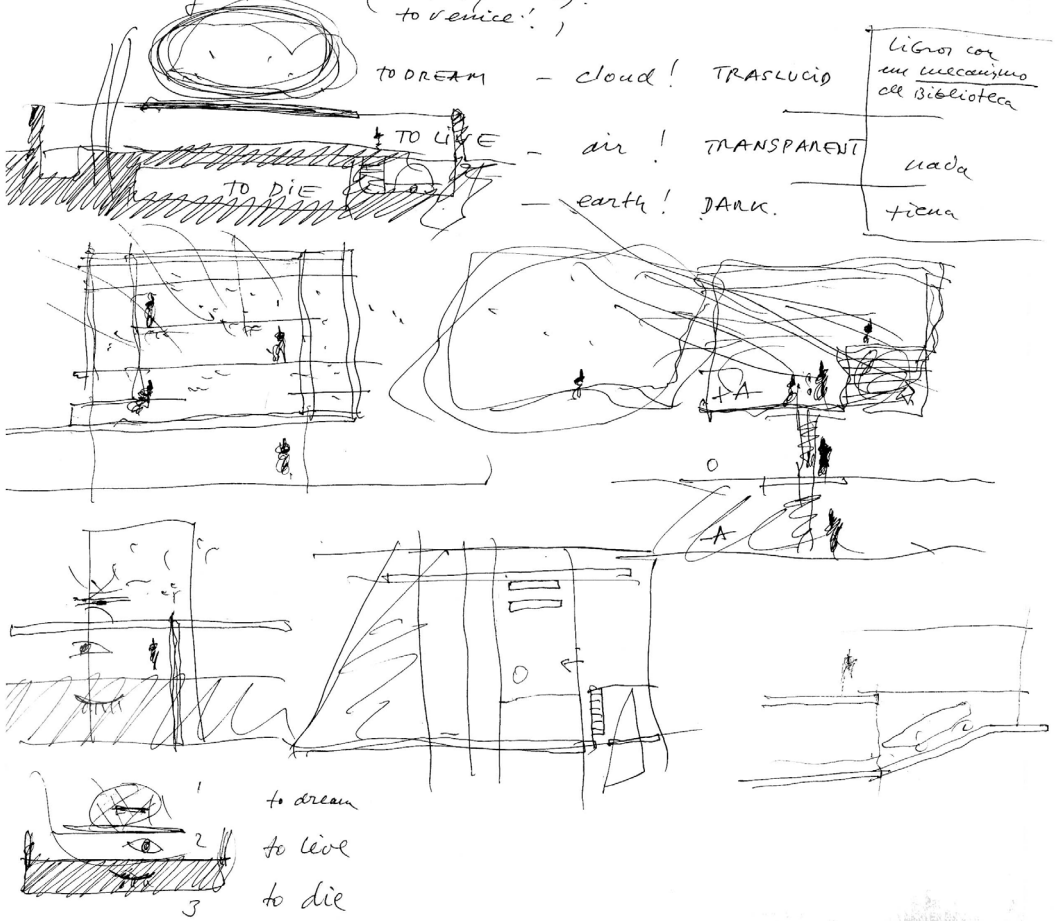 to venice!
TO DREAM — cloud! TRASLUCID
TO LIVE — air! TRANSPARENT
TO DIE — earth! DARK.
Libros con
un mecanismo
de Biblioteca
nada
tierra
+A
O
-A
O
1 to dream
2 to live
3 to die